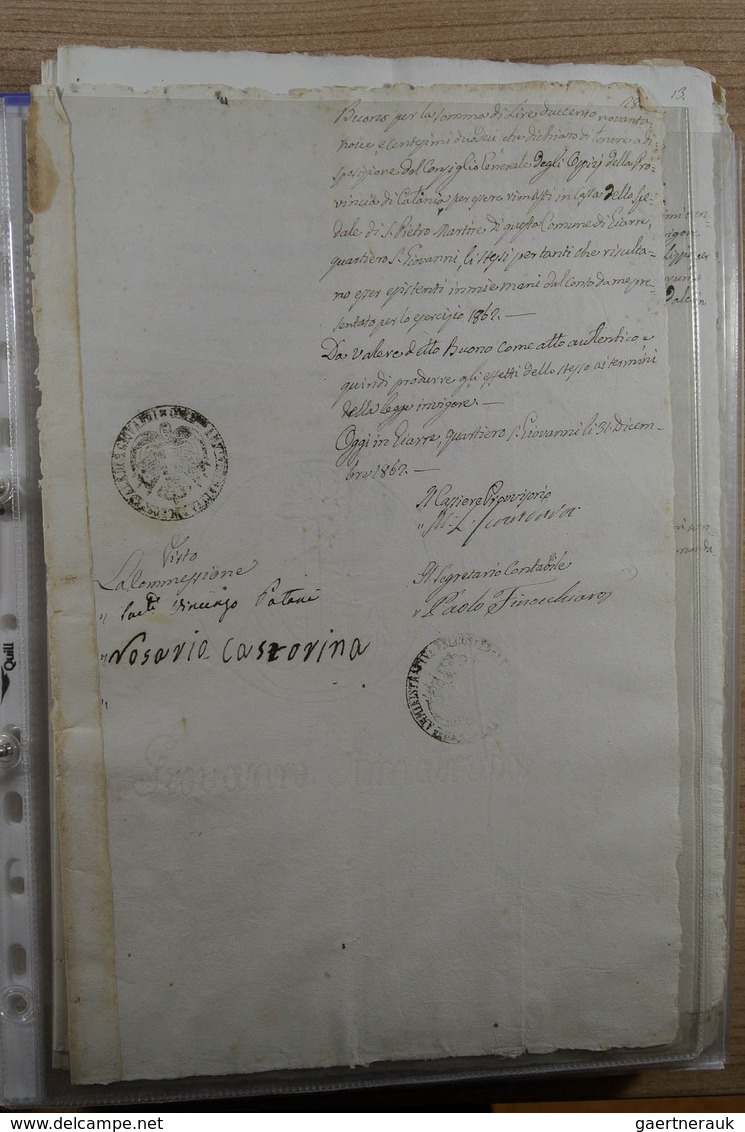 13.
Buono per la somma di Lire duecento novanta
nove e centesimi duodeci che dichiaro di tenere a di=
sposizione del Consiglio Generale degli Ospizj della Pro=
vincia di Catania per essere rimasti in Cassa dello Spe=
dale di S. Pietro Martire di questa Comune di Giarre,
quartiero S. Giovanni, li stessi per tanti che risulta=
no esser esistenti in mie mani dal Conto da me pre=
sentato per lo esercizio 1862. —
Da valere detto Buono come atto autentico e
quindi produrre gli effetti dello stesso ai termini
della legge in vigore. —
Oggi in Giarre, quartiero S. Giovanni li 31 Dicem=
bre 1862. —
Il Cassiere Provvisorio
Visto
La Commessione
Il Segretario Contabile
" Vincenzo Patanè
" Paolo Finocchiaro
" Rosario Castorina
"
Quill
gaertnerauk